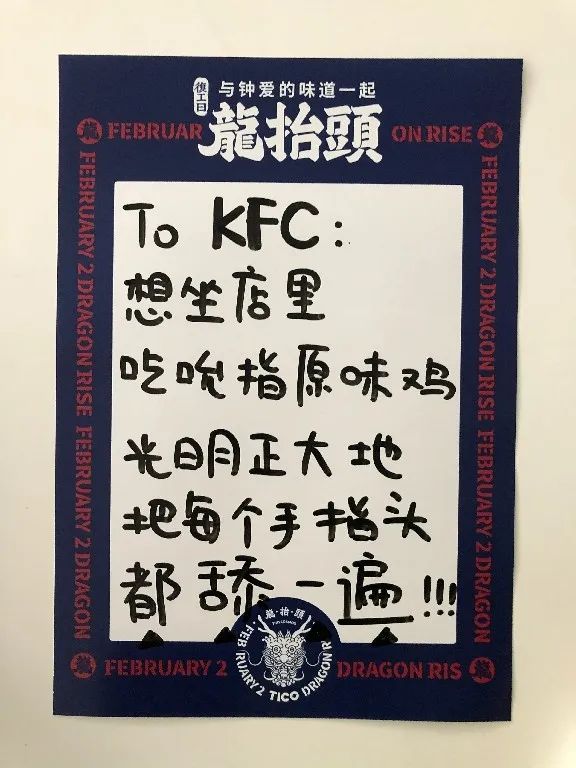 復工日
与钟爱的味道一起
龍抬頭
FEBRUAR
ON RISE
FEBRUARY 2 DRAGON RISE FEBRUARY 2 DRAGON
FEBRUARY 2 DRAGON RISE FEBRUARY 2 DRAGON
To KFC:
想坐店里
吃吮指原味鸡
光明正大地
把每个手指头
都舔一遍!!!
龍·抬·頭
FEBRUARY 2 TICO DRAGON R
FEBRUARY 2
DRAGON RIS